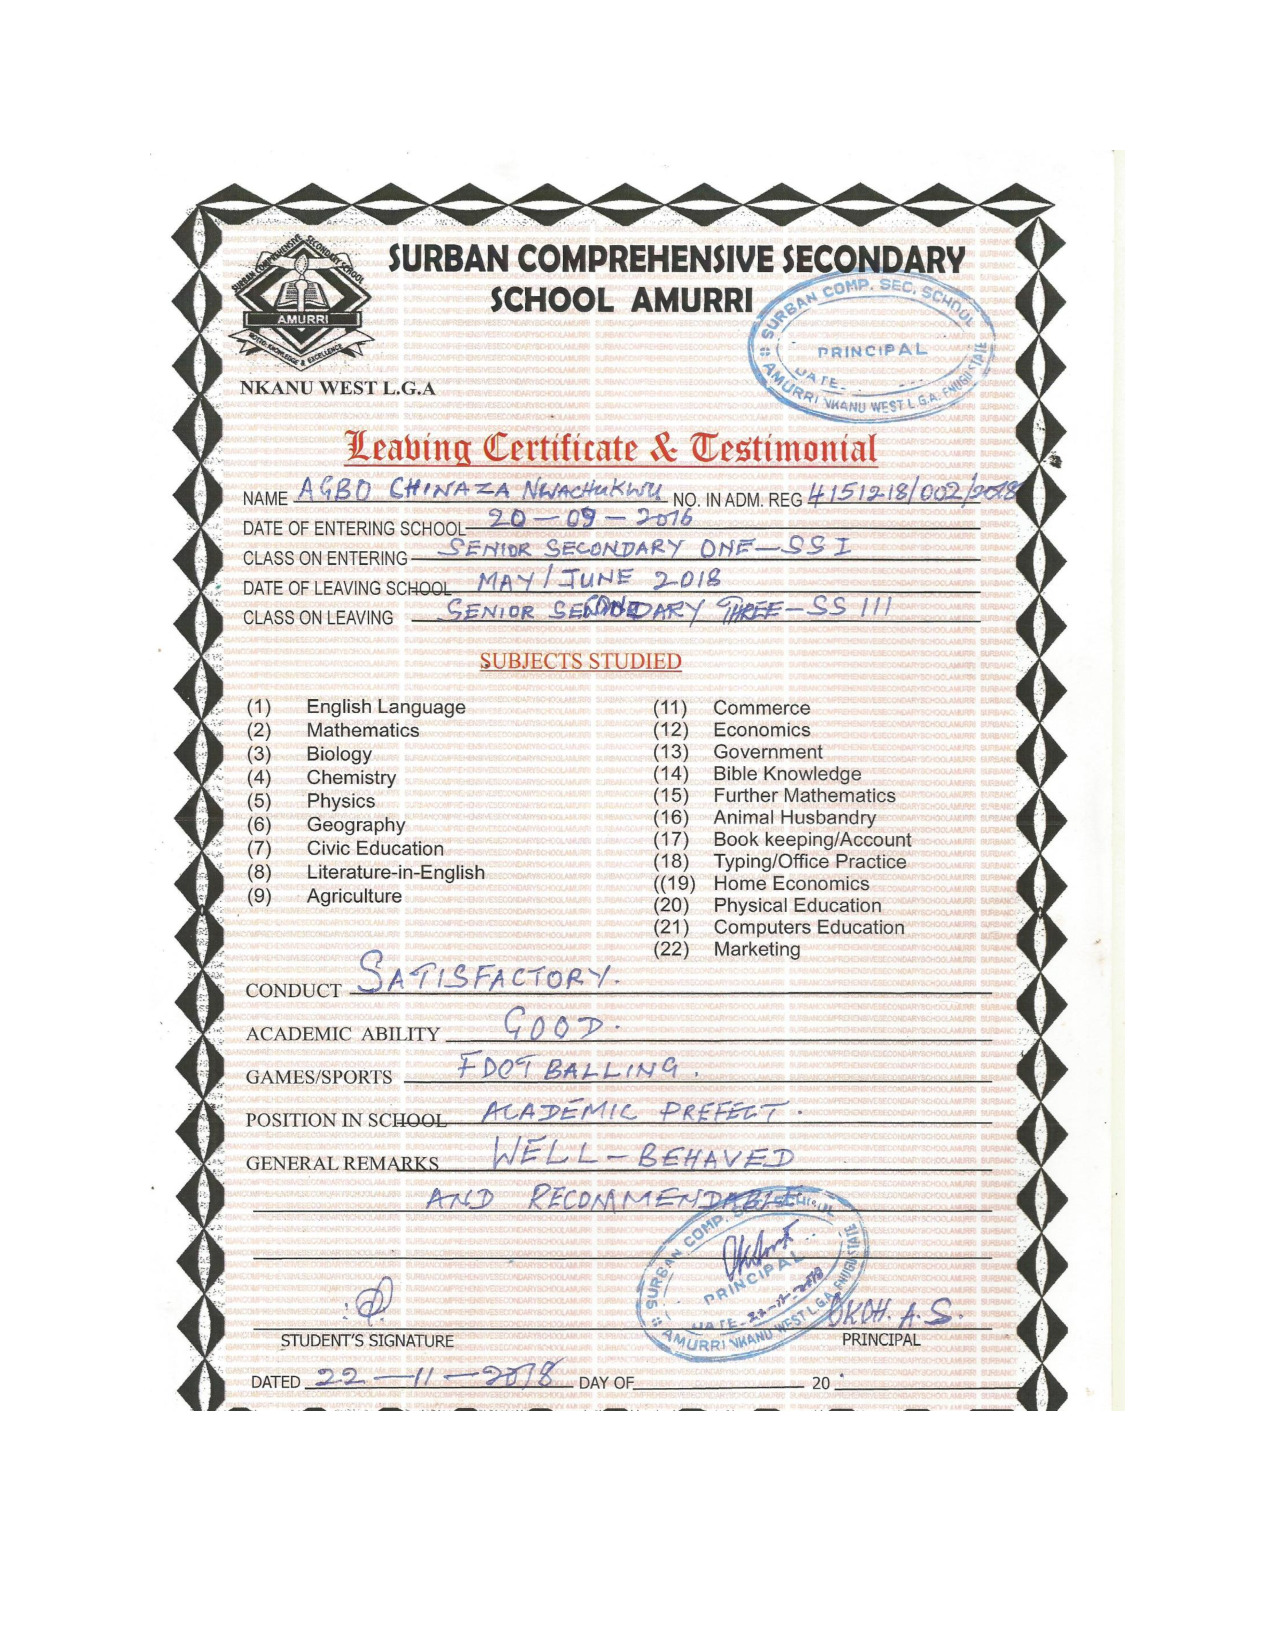 SURBAN COMPREHENSIVE SECONDARY
SCHOOL AMURRI
SURBAN COMPREHENSIVE SECONDARY SCHOOL
AMURRI
MOTTO: KNOWLEDGE & EXCELLENCE
SURBAN COMP. SEC. SCHOOL
PRINCIPAL
DATE
AMURRI NKANU WEST L.G.A. ENUGU STATE
NKANU WEST L.G.A
Leaving Certificate & Testimonial
NAME AGBO CHINAZA NWACHUKWU NO. IN ADM. REG 4151218/002/2018
DATE OF ENTERING SCHOOL 20-09-2016
CLASS ON ENTERING SENIOR SECONDARY ONE-SS I
DATE OF LEAVING SCHOOL MAY/JUNE 2018
CLASS ON LEAVING SENIOR SECONDARY THREE-SS III
SUBJECTS STUDIED
(1) English Language
(2) Mathematics
(3) Biology
(4) Chemistry
(5) Physics
(6) Geography
(7) Civic Education
(8) Literature-in-English
(9) Agriculture
(11) Commerce
(12) Economics
(13) Government
(14) Bible Knowledge
(15) Further Mathematics
(16) Animal Husbandry
(17) Book keeping/Account
(18) Typing/Office Practice
((19) Home Economics
(20) Physical Education
(21) Computers Education
(22) Marketing
CONDUCT SATISFACTORY.
ACADEMIC ABILITY GOOD.
GAMES/SPORTS FOOTBALLING.
POSITION IN SCHOOL ACADEMIC PREFECT.
GENERAL REMARKS WELL-BEHAVED
AND RECOMMENDABLE
SURBAN COMP. SEC. SCHOOL
PRINCIPAL
DATE 22-11-2018
AMURRI NKANU WEST L.G.A. ENUGU STATE
OKOH. A.S.
STUDENT'S SIGNATURE PRINCIPAL
DATED 22-11-2018 DAY OF 20